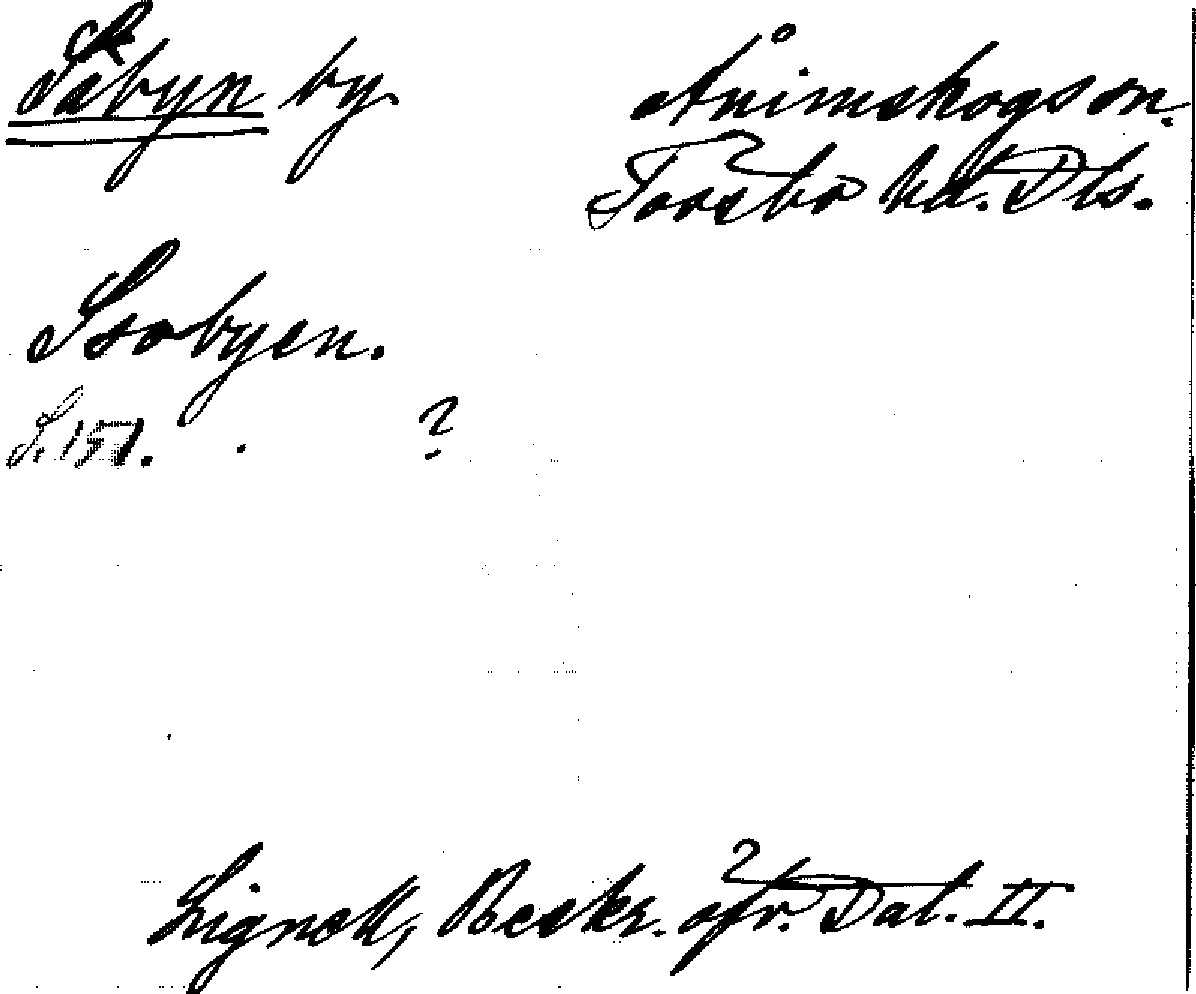 Såbyn by.
Ånimskogs sn.
Tössbo hd. Dls.
Ssobyen.
S. 151. . ?
Lignell, Beskr. öfv. Dal. II.